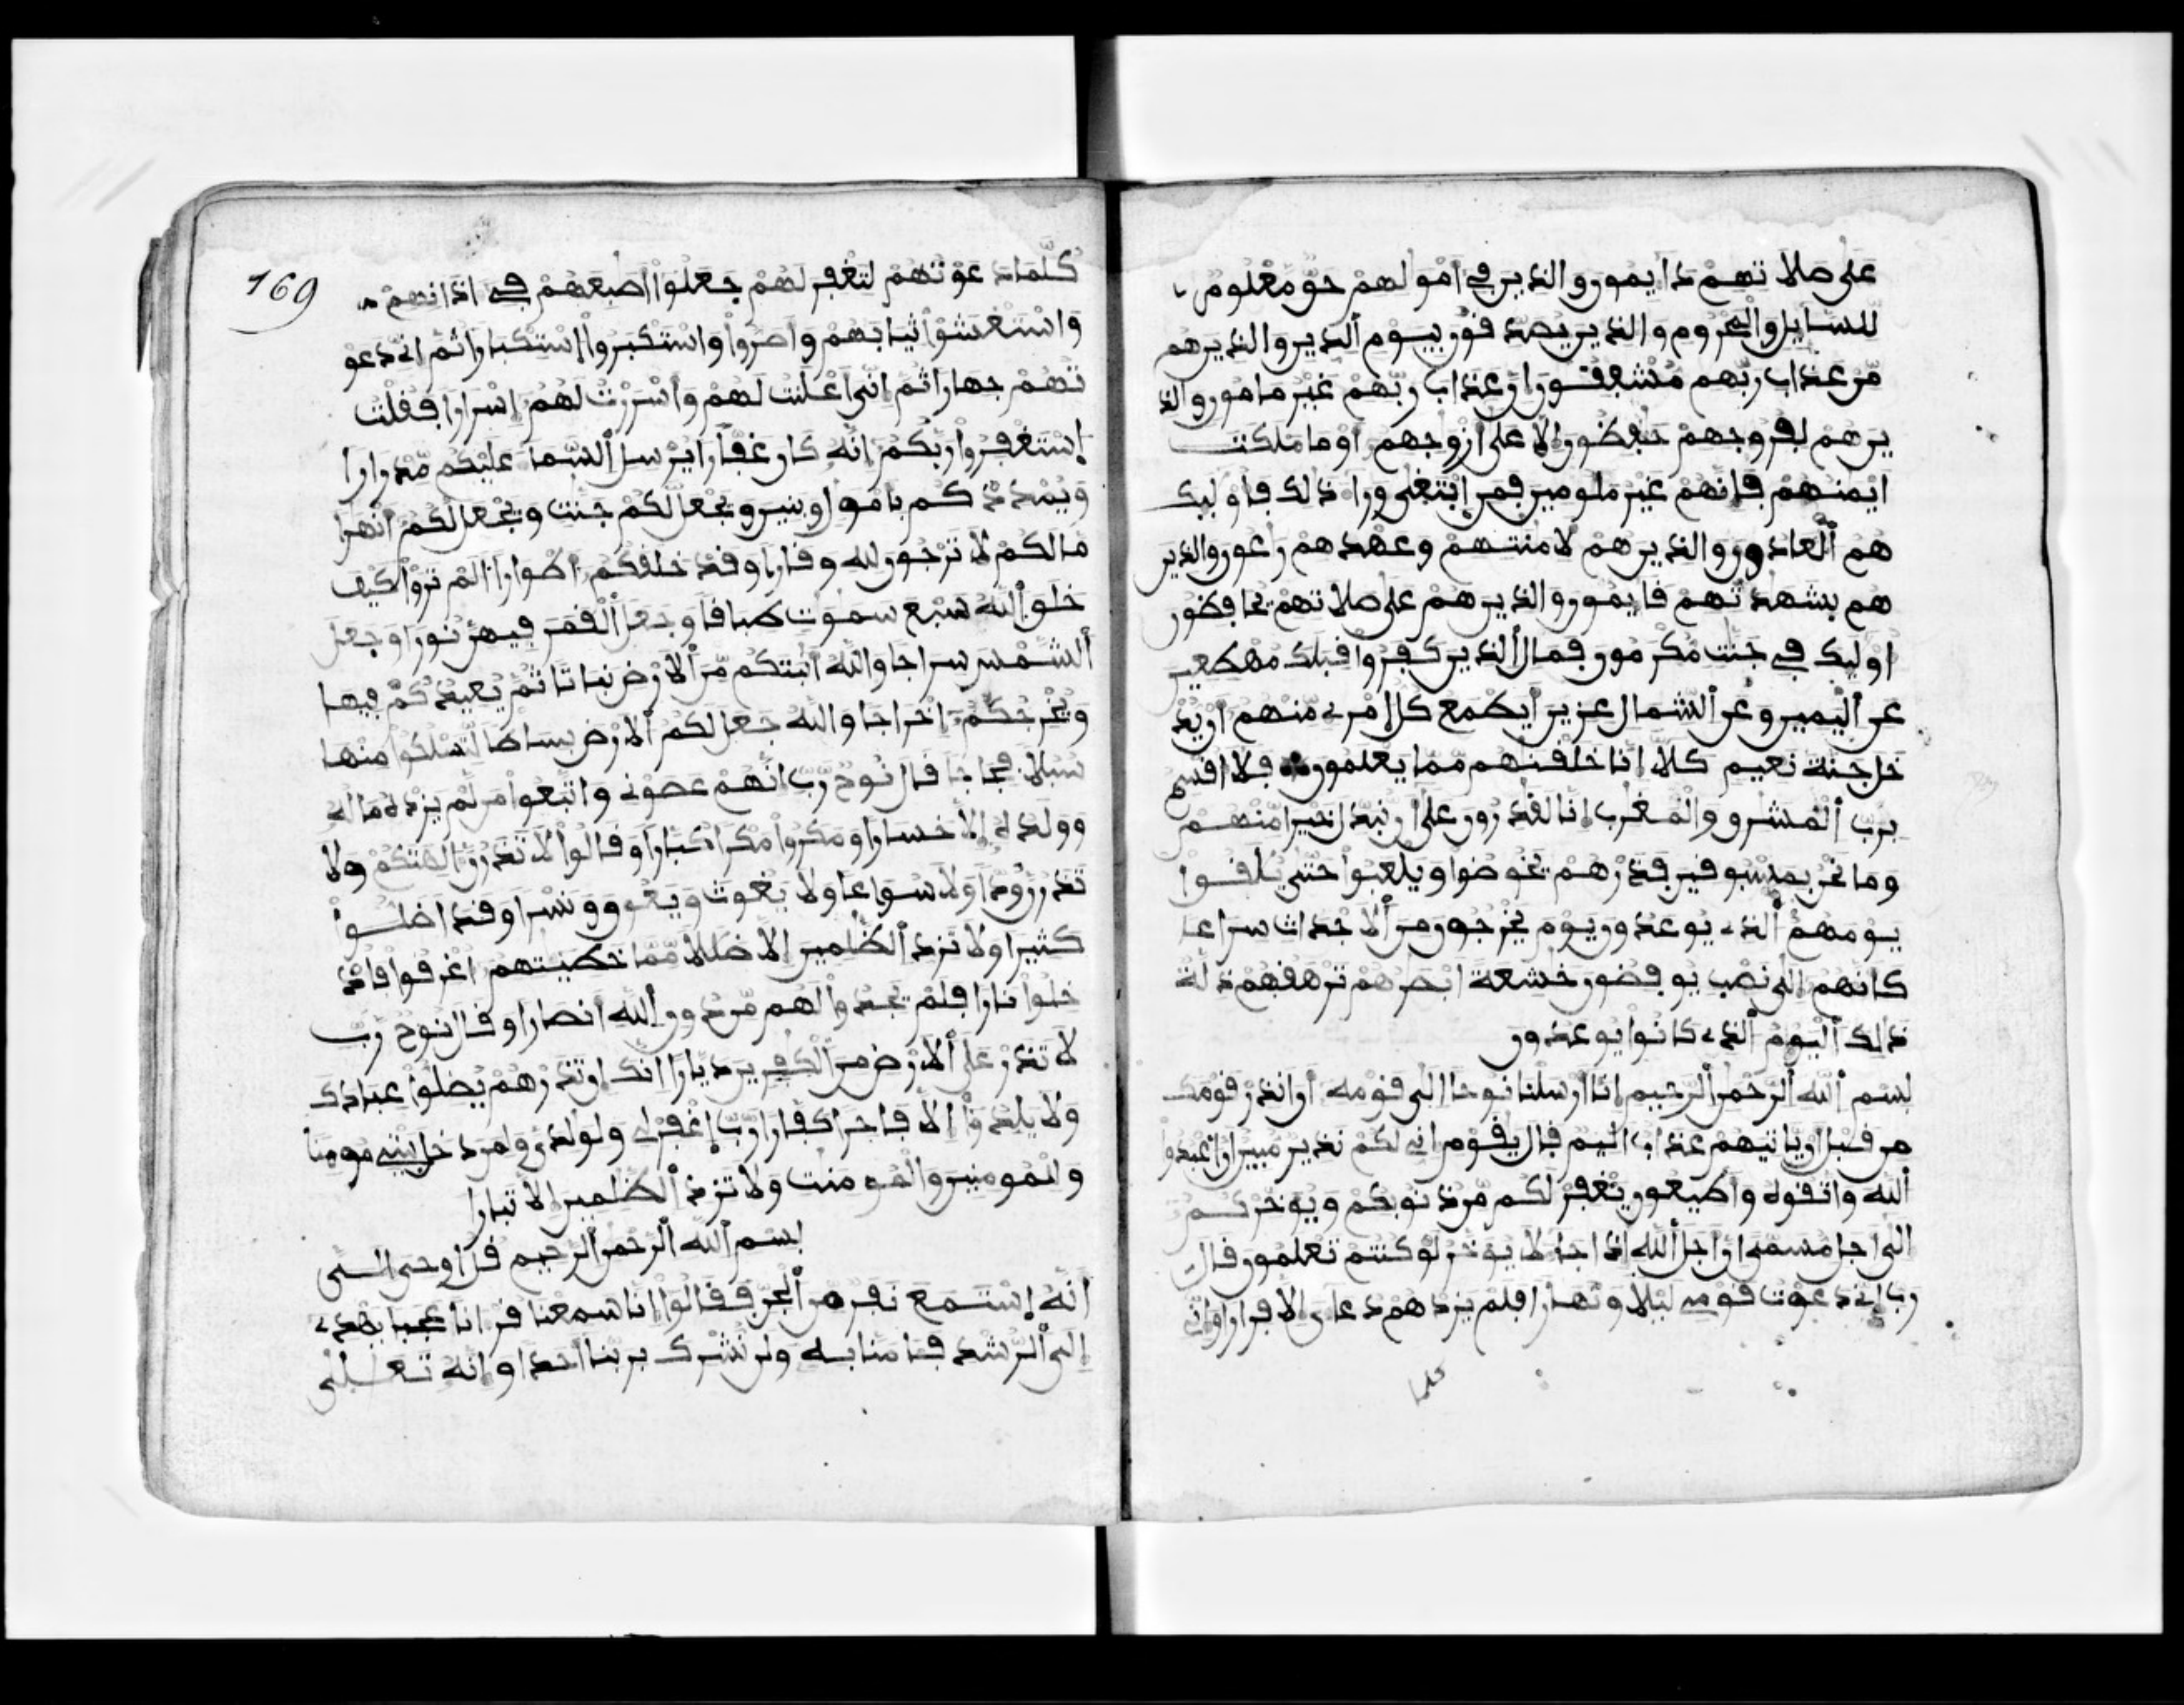 على صلاتهم دايمون والذين في امولهم حق معلوم
للسايل والمحروم والذين يصدفون بيوم الدين والذين هم
من عذاب ربهم مشفقون ان عذاب ربهم غير مامون والذ
ين هم لفروجهم حفظون الا على ازوجهم او ما ملكت
ايمنهم فانهم غير ملومين فمن ابتغى ورا ذلك فاوليك
هم العادون والذين هم لامنتهم وعهدهم رعون والذين
هم بشهدتهم قايمون والذين هم على صلاتهم يحافظون
اوليك في جنت مكرمون فمال الذين كفروا قبلك مهطعين
عن اليمين وعن الشمال عزين ايطمع كل امرء منهم ان يد
خل جنة نعيم كلا انا خلقنهم مما يعلمون فلا اقسم
برب المشرق والمغرب انا لقدرون على ان نبدل خيرا منهم
وما نحن بمسبوقين فذرهم يخوضوا ويلعبوا حتى يلقوا
يومهم الذي يوعدون يوم يخرجون من الاجداث سراعا
كانهم الى نصب يوفضون خشعة ابصرهم ترهقهم ذلة
ذلك اليوم الذي كانوا يوعدون
بسم الله الرحمن الرحيم انا ارسلنا نوحا الى قومه ان انذر قومك
من قبل ان ياتيهم عذاب اليم قال يقوم اني لكم نذير مبين ان اعبدوا
الله واتقوه واطيعون يغفر لكم من ذنوبكم ويوخركم
الى اجل مسمى ان اجل الله اذا جا لا يوخر لو كنتم تعلمون قال
رب اني دعوت قومي ليلا ونهارا فلم يزدهم دعاي الا فرارا واني
كلما
169
كلما دعوتهم لتغفر لهم جعلوا اصبعهم في اذانهم
واستغشوا ثيابهم واصروا واستكبروا استكبارا ثم اني دعو
تهم جهارا ثم اني اعلنت لهم واسررت لهم اسرارا فقلت
استغفروا ربكم انه كان غفارا يرسل السما عليكم مدرارا
ويمددكم باموال وبنين ويجعل لكم جنت ويجعل لكم انهرا
ما لكم لا ترجون لله وقارا وقد خلقكم اطوارا الم تروا كيف
خلق الله سبع سموت طباقا وجعل القمر فيهن نورا وجعل
الشمس سراجا والله انبتكم من الارض نباتا ثم يعيدكم فيها
ويخرجكم اخراجا والله جعل لكم الارض بساطا لتسلكوا منها
سبلا فجاجا قال نوح رب انهم عصوني واتبعوا من لم يزده ماله
وولده الا خسارا ومكروا مكرا كبارا وقالوا لا تذرن الهتكم ولا
تذرن ودا ولا سواعا ولا يغوث ويعوق ونسرا وقد اضلوا
كثيرا ولا تزد الظلمين الا ضللا مما خطيتهم اغرقوا فاد
خلوا نارا فلم يجدوا لهم من دون الله انصارا وقال نوح رب
لا تذر على الارض من الكفرين ديارا انك ان تذرهم يضلوا عبادك
ولا يلدوا الا فاجرا كفارا رب اغفر لي ولولدي ولمن دخل بيتي مومنا
وللمومنين والمومنت ولا تزد الظلمين الا تبارا
بسم الله الرحمن الرحيم قل اوحى الى
انه استمع نفر من الجن فقالوا انا سمعنا قرانا عجبا يهدي
الى الرشد فامنا به ولن نشرك بربنا احدا وانه تعلى